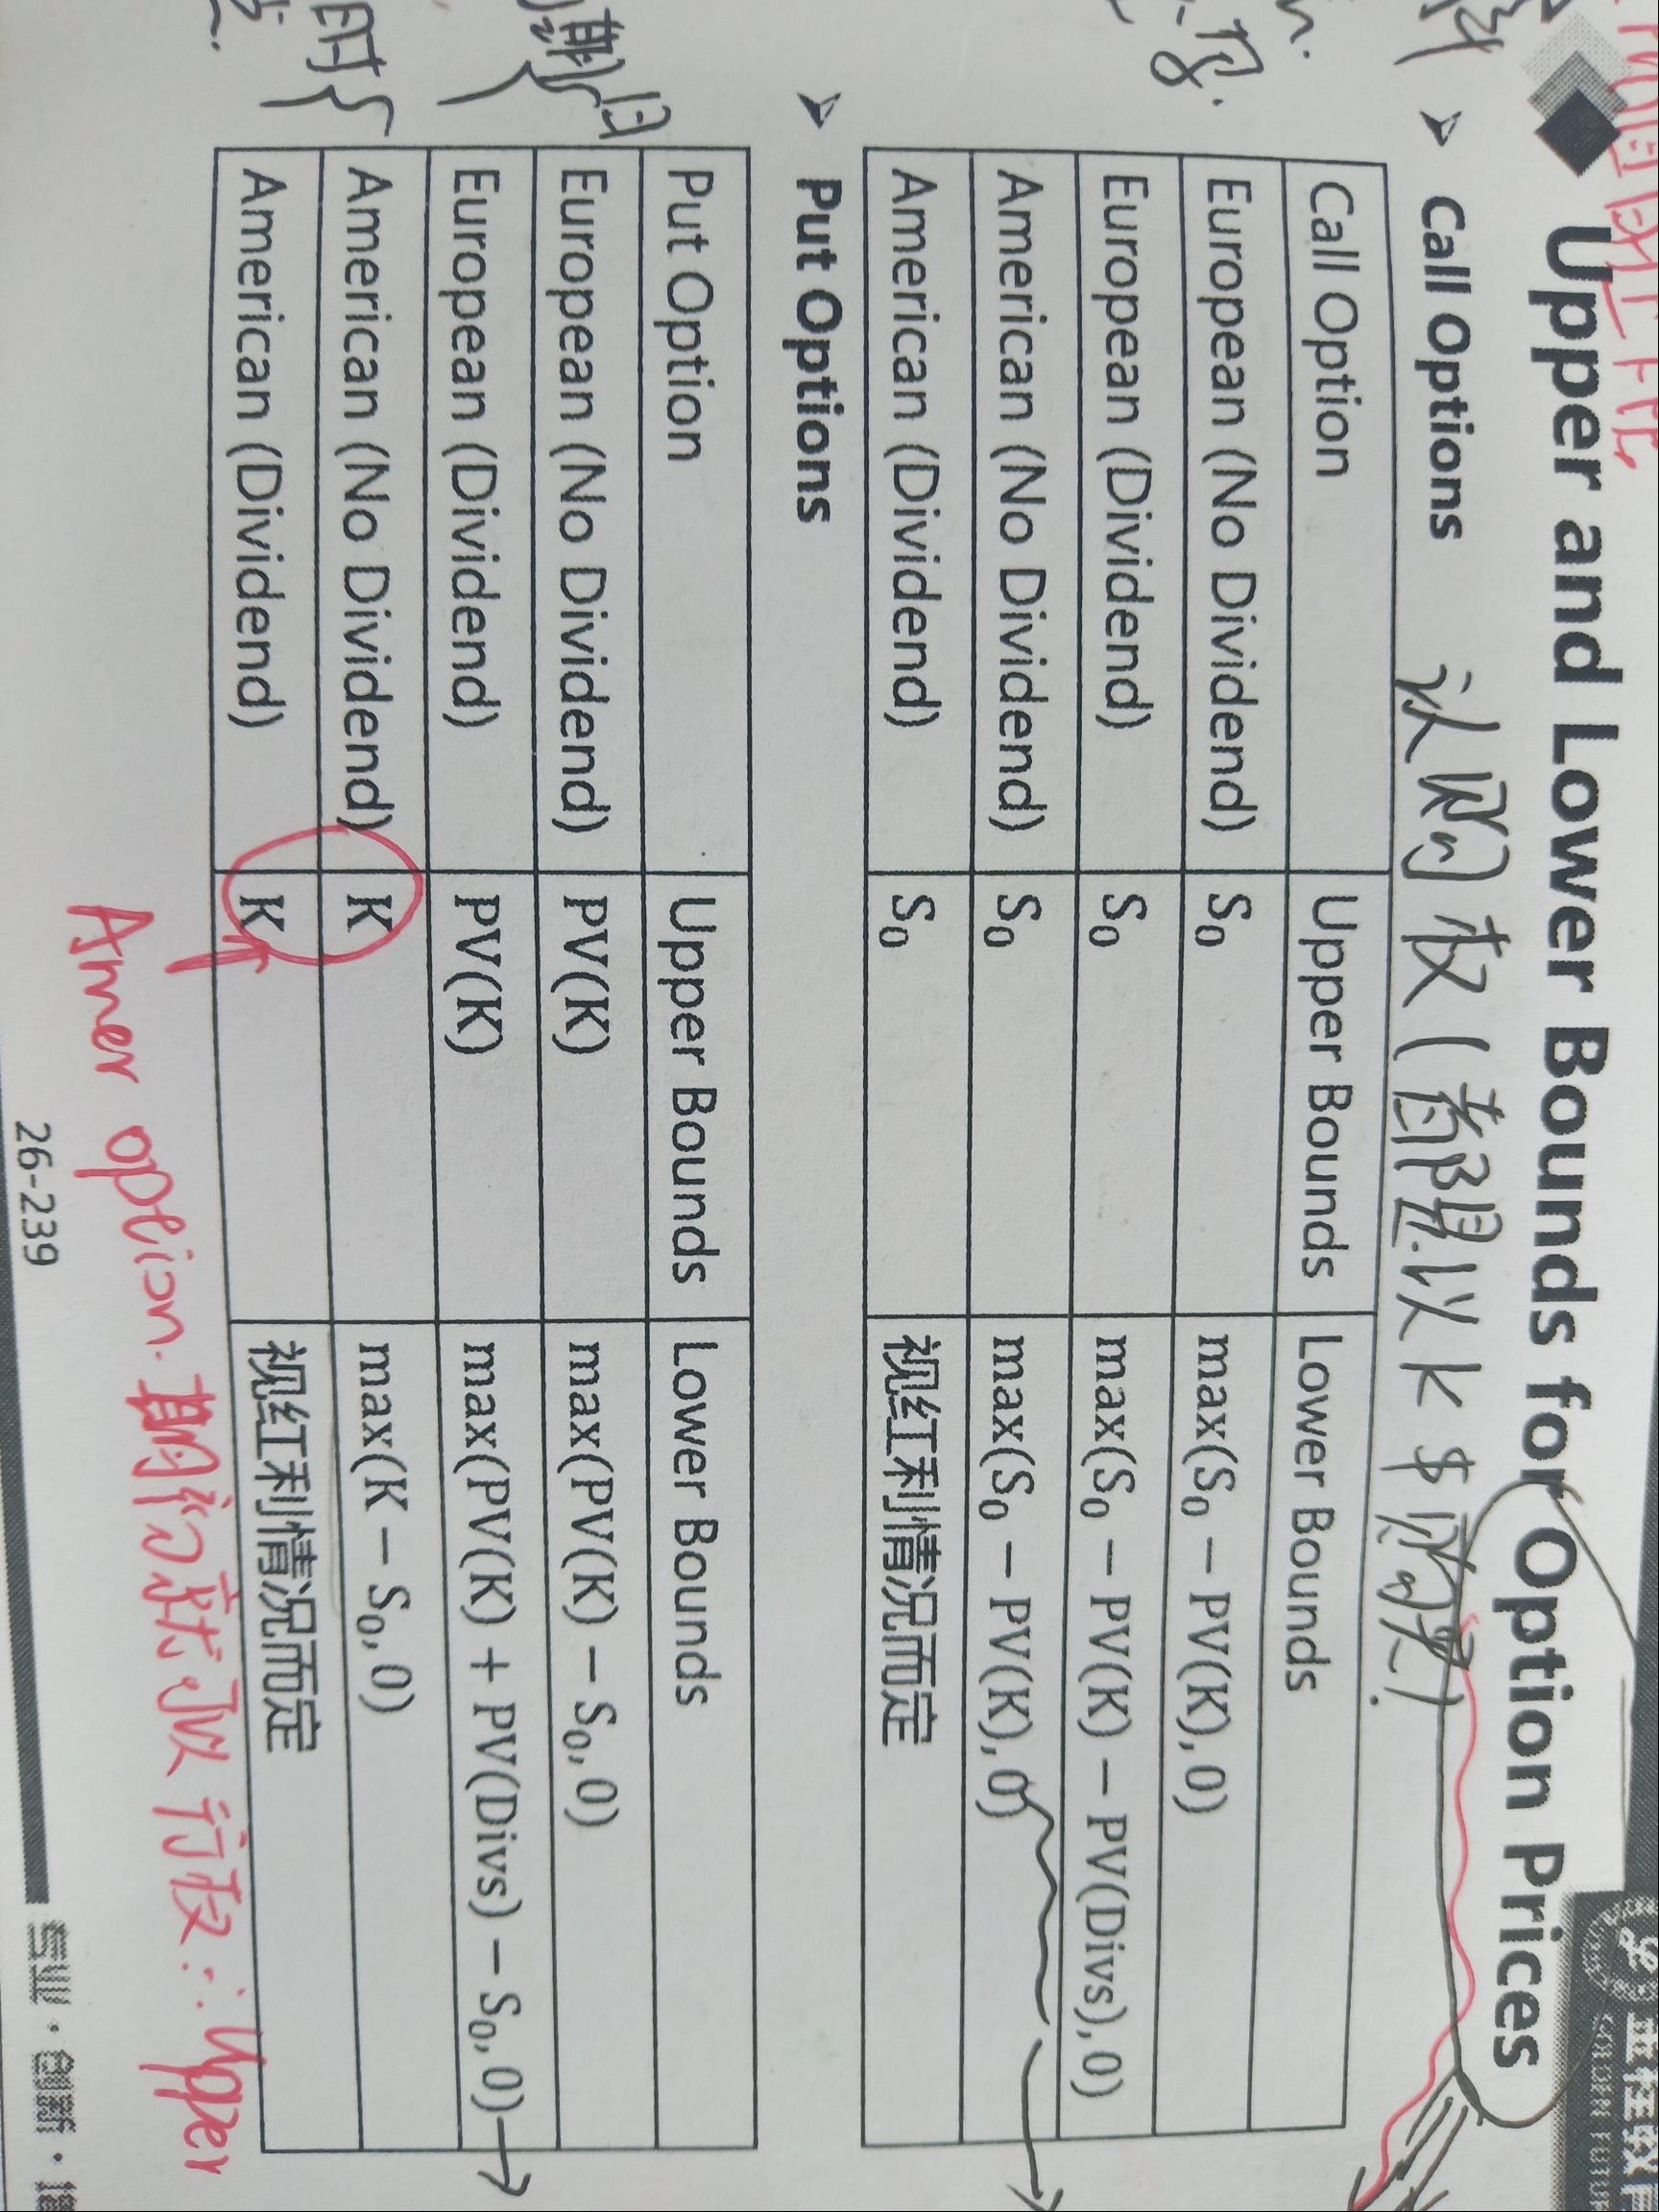 Upper and Lower Bounds for Option Prices
➢ Call Options
认购权(有限.以K$购买).
Call Option Upper Bounds Lower Bounds
European (No Dividend) S₀ max(S₀ − PV(K), 0)
European (Dividend) S₀ max(S₀ − PV(K) − PV(Divs), 0)
American (No Dividend) S₀ max(S₀ − PV(K), 0)
American (Dividend) S₀ 视红利情况而定
➢ Put Options
Put Option Upper Bounds Lower Bounds
European (No Dividend) PV(K) max(PV(K) − S₀, 0)
European (Dividend) PV(K) max(PV(K) + PV(Divs) − S₀, 0)
American (No Dividend) K max(K − S₀, 0)
American (Dividend) K 视红利情况而定
Amer option. 期初就可以行权 ∴ Upper
26-239
专业·创新·